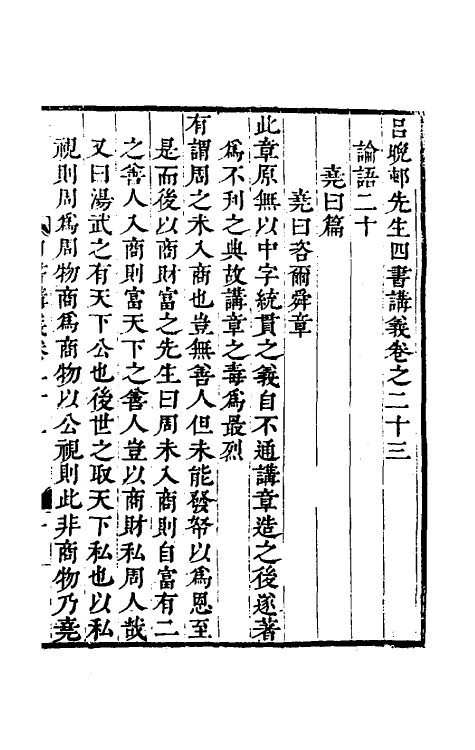 呂晚邨先生四書講義卷之二十三
論語二十
堯曰篇
堯曰咨爾舜章
此章原無以中字統貫之義自不通講章造之後遂著
爲不刋之典故講章之毒爲最烈
有謂周之未入商也豈無善人但未能發帑以爲恩至
是而後以商財富之先生曰周未入商則自富有二
之善人入商則富天下之善人豈以商財私周人哉
又曰湯武之有天下公也後世之取天下私也以私
視則周爲周物商爲商物以公視則此非商物乃堯